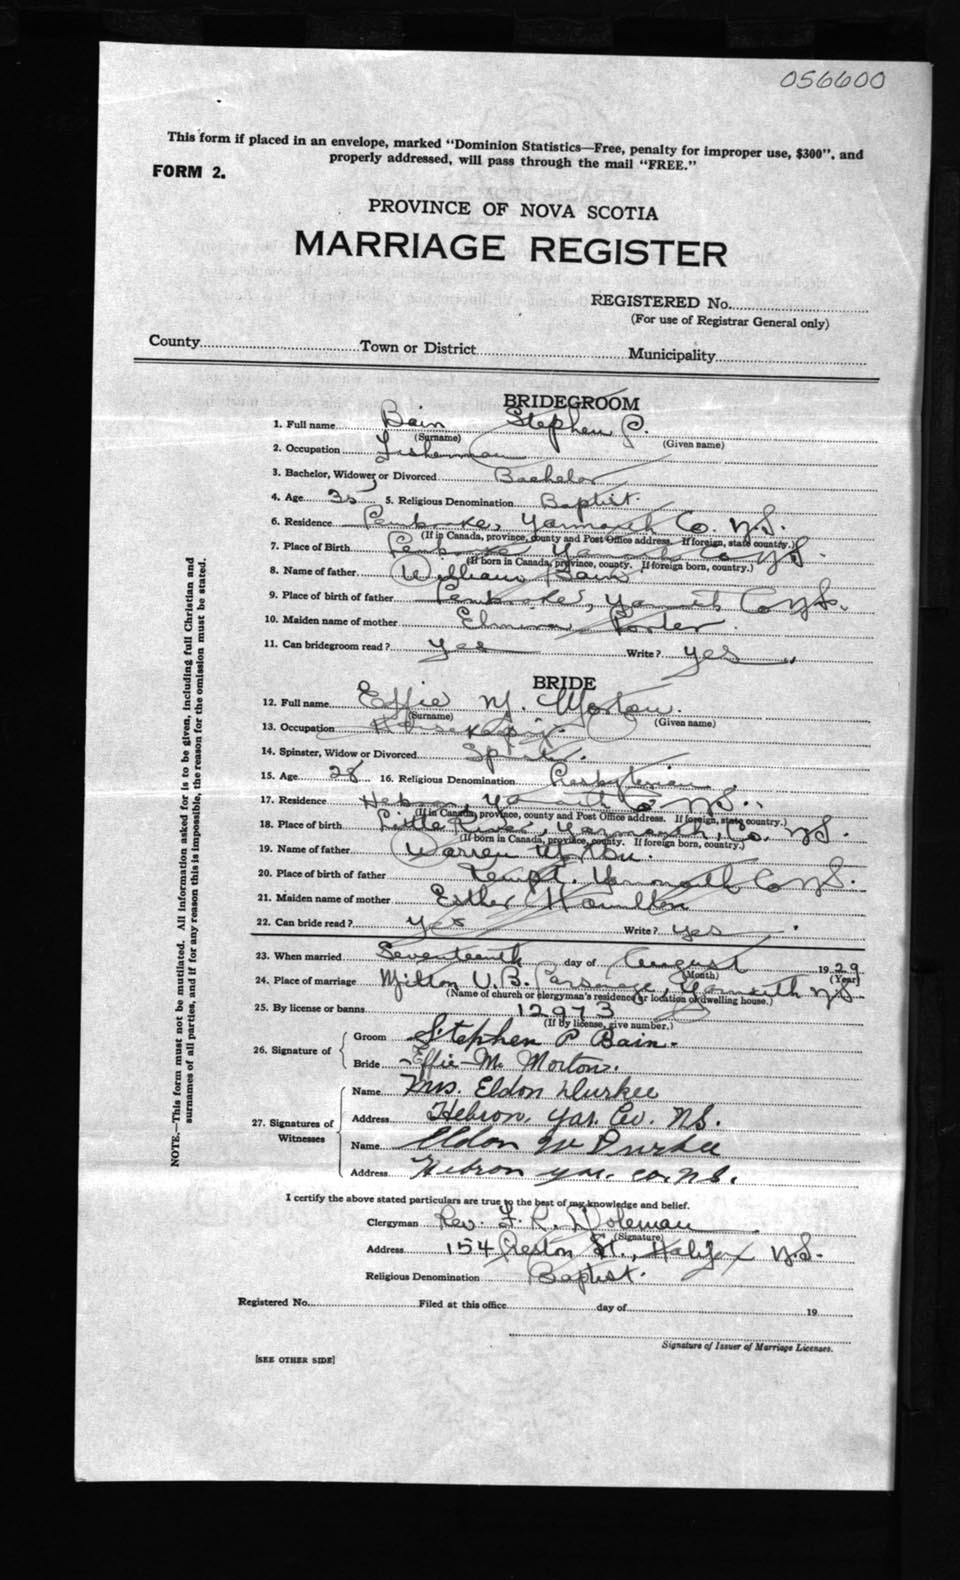 056600
This form if placed in an envelope, marked "Dominion Statistics—Free, penalty for improper use, $300", and
properly addressed, will pass through the mail "FREE."
FORM 2.
PROVINCE OF NOVA SCOTIA
MARRIAGE REGISTER
REGISTERED No.
(For use of Registrar General only)
County Town or District Municipality
BRIDEGROOM
1. Full name Bain Stephen P.
(Surname) (Given name)
2. Occupation Fisherman
3. Bachelor, Widower or Divorced Bachelor
4. Age 35 5. Religious Denomination Baptist.
6. Residence Pembroke, Yarmouth Co. N.S.
(If in Canada, province, county and Post Office address. If foreign, state country.)
7. Place of Birth Pembroke Yarmouth Co N.S.
(If born in Canada, province, county. If foreign born, country.)
8. Name of father William Bain
9. Place of birth of father Pembroke, Yarmouth Co N.S.
10. Maiden name of mother Elmira Porter.
11. Can bridegroom read? Yes Write? yes
BRIDE
12. Full name Effie M. Morton.
(Surname) (Given name)
13. Occupation Housekeeping.
14. Spinster, Widow or Divorced Spinster.
15. Age 28 16. Religious Denomination Presbyterian
17. Residence Hebron, Yarmouth Co N.S.
(If in Canada, province, county and Post Office address. If foreign, state country.)
18. Place of birth Little River, Yarmouth, Co. N.S.
(If born in Canada, province, county. If foreign born, country.)
19. Name of father Warren Morton.
20. Place of birth of father Kempt. Yarmouth Co N.S.
21. Maiden name of mother Esther Hamilton
22. Can bride read? Yes Write? yes
23. When married Seventeenth day of August 1929
(Month) (Year)
24. Place of marriage Milton U.B. Parsonage, Yarmouth N.S.
(Name of church or clergyman's residence or location of dwelling house.)
25. By license or banns 12973
(If by license, give number.)
26. Signature of
Groom Stephen P Bain.
Bride Effie M. Morton.
27. Signatures of Witnesses
Name Mrs. Eldon Durkee
Address Hebron, Yar. Co. N.S.
Name Eldon W Durkee
Address Hebron Yar. Co. N.S.
I certify the above stated particulars are true to the best of my knowledge and belief.
Clergyman Rev. F. R.
(Signature)
Address 154 Preston St., Halifax N.S.
Religious Denomination Baptist.
Registered No. Filed at this office day of 19
Signature of Issuer of Marriage Licenses.
[SEE OTHER SIDE]
NOTE.—This form must not be mutilated. All information asked for is to be given, including full Christian and
surnames of all parties, and if for any reason this is impossible, the reason for the omission must be stated.